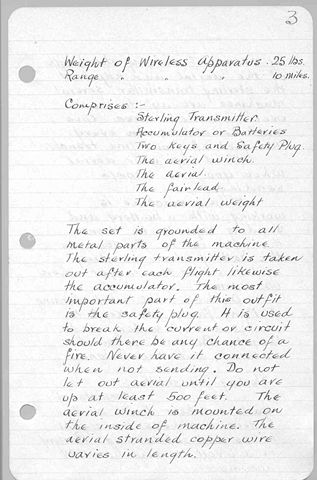 3
Weight of Wireless Apparatus. 25 lbs.
Range " " " 10 miles.
Comprises :-
Sterling Transmitter
Accumulator or Batteries
Two Keys and Safety Plug.
The aerial winch.
The aerial.
The fairlead
The aerial weight
The set is grounded to all
metal parts of the machine
The sterling transmitter is taken
out after each flight likewise
the accumulator. The most
important part of this outfit
is the safety plug. It is used
to break the current or circuit
should there be any chance of a
fire. Never have it connected
when not sending. Do not
let out aerial until you are
up at least 500 feet. The
aerial winch is mounted on
the inside of machine. The
aerial stranded copper wire
varies in length.